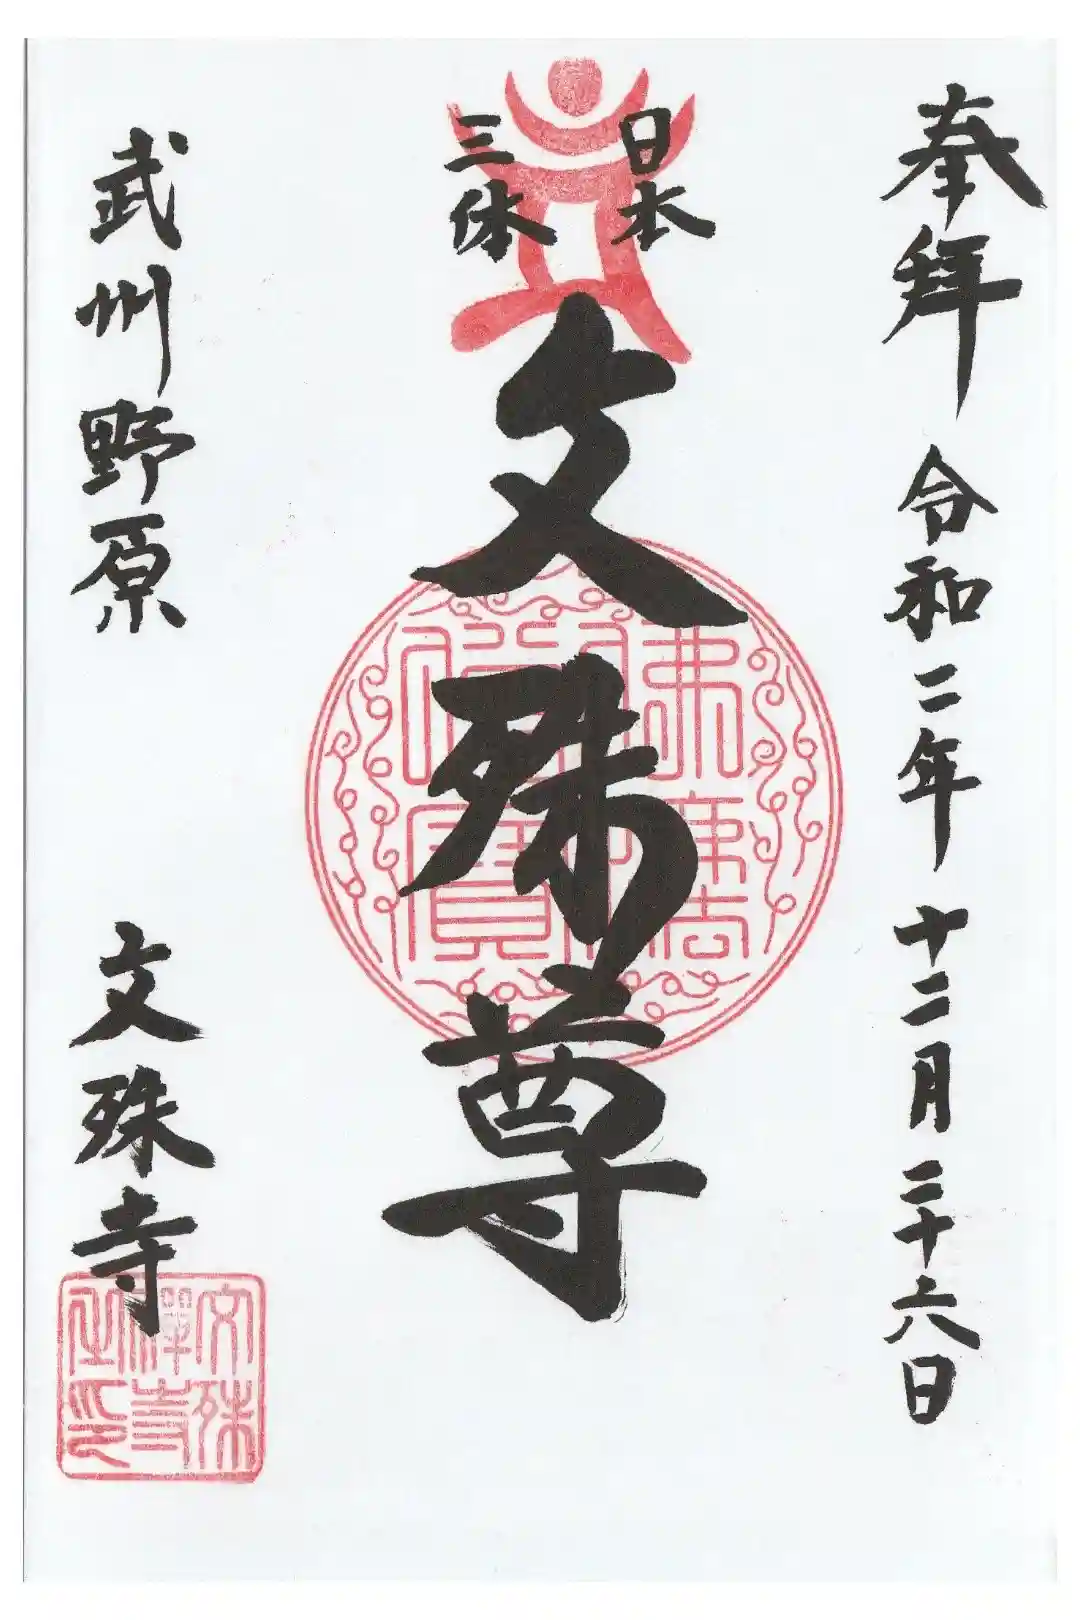 奉拝 令和二年 十二月二十六日
日本
三体
文殊尊
佛法僧寶
武州野原 文殊寺
文殊禅寺之印